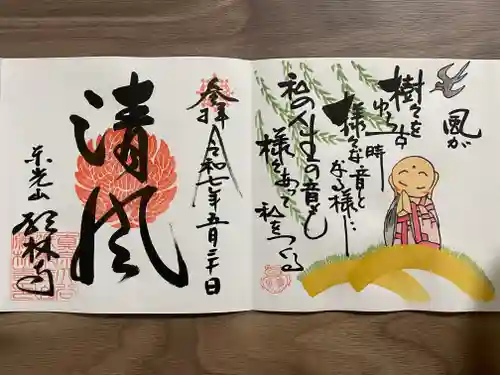 風が
樹々を
ゆらす時
様々な音と
なる様に
私の人生の音も
様々あって
私をつくる
参拝
令和七年五月三十日
清風
東光山